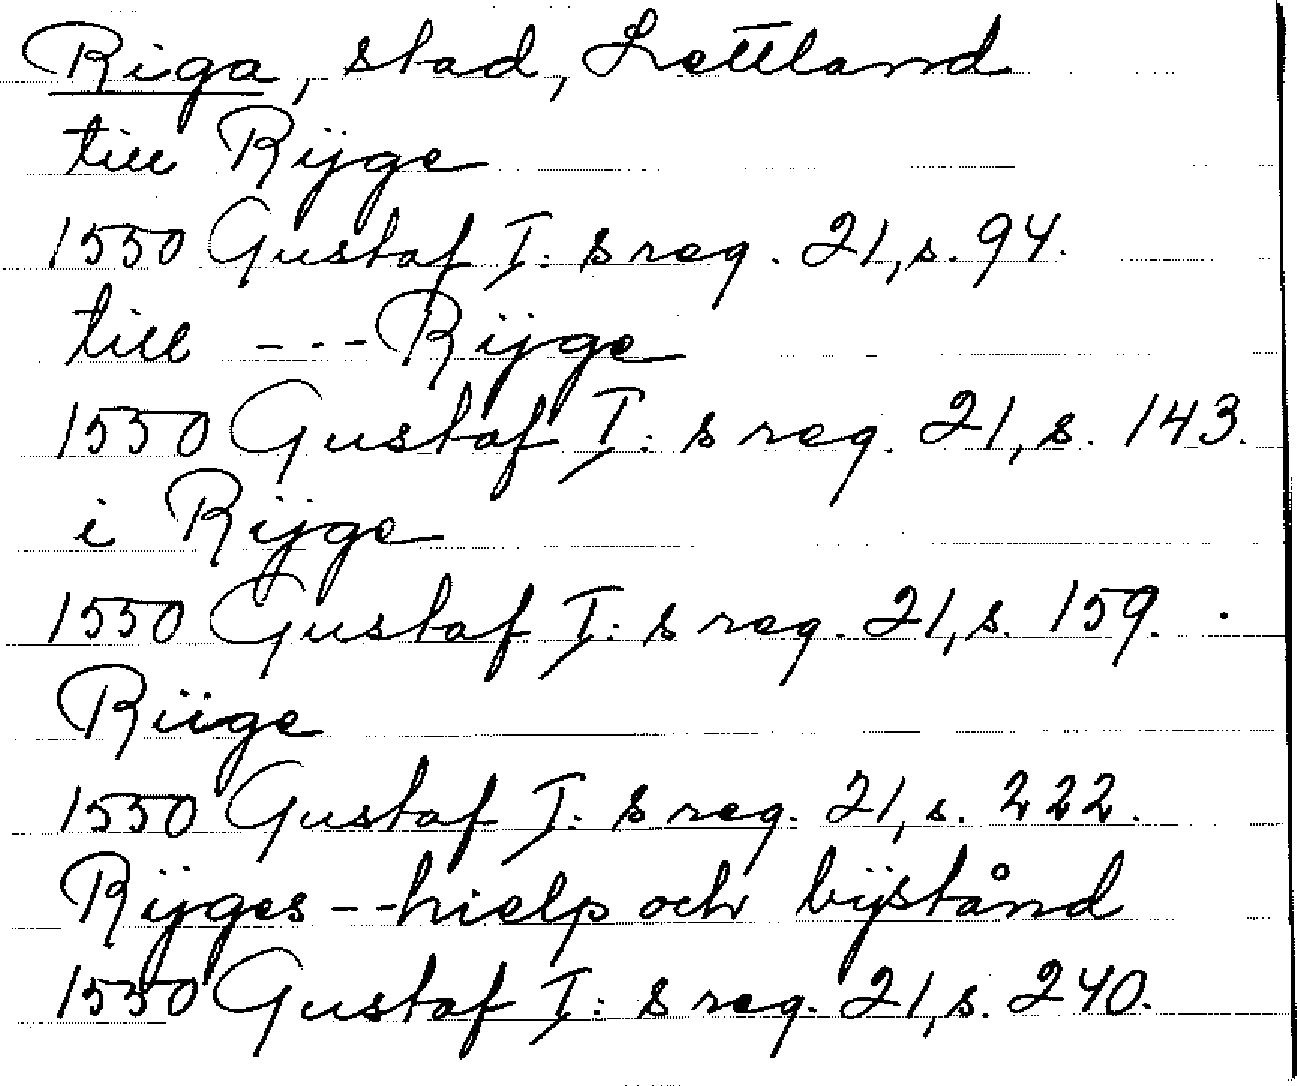 Riga, stad, Lettland
till Rijge
1550 Gustaf I: s reg. 21, s. 94.
till --- Rijge
1550 Gustaf I: s reg. 21, s. 143.
i Rijge
1550 Gustaf I: s reg. 21, s. 159.
Riige
1550 Gustaf I: s reg. 21, s. 222.
Rijges -- hielp och bijstånd
1550 Gustaf I: s reg. 21, s. 240.